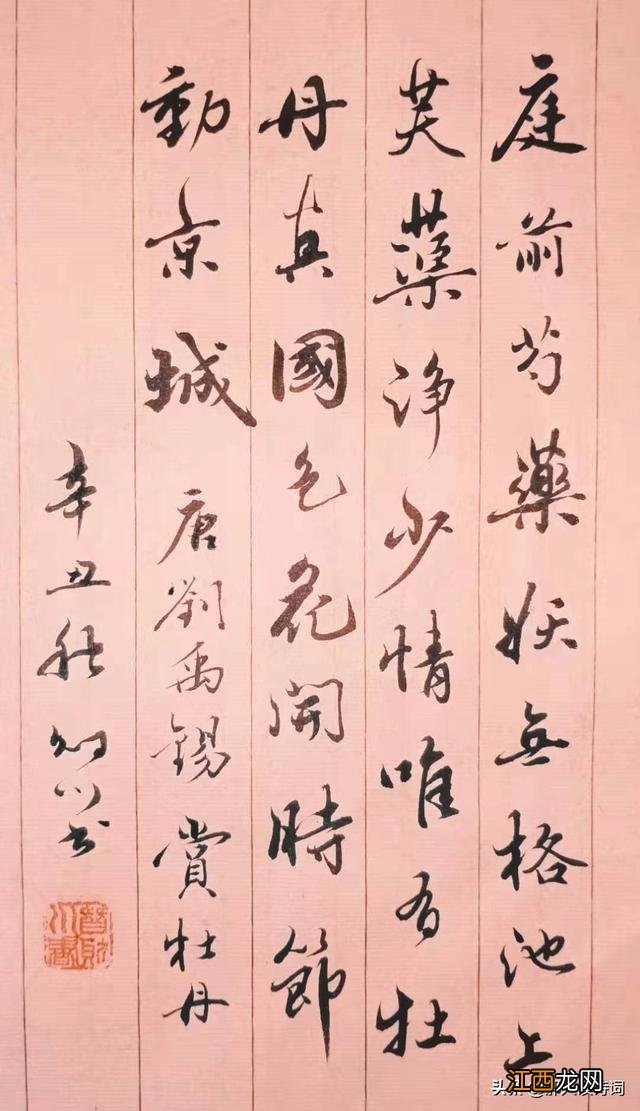 庭前芍藥妖無格池上
芙蕖淨少情唯有牡
丹真國色花開時節
動京城 唐劉禹錫賞牡丹
辛丑秋 川书
头条
诗词
江西龙网